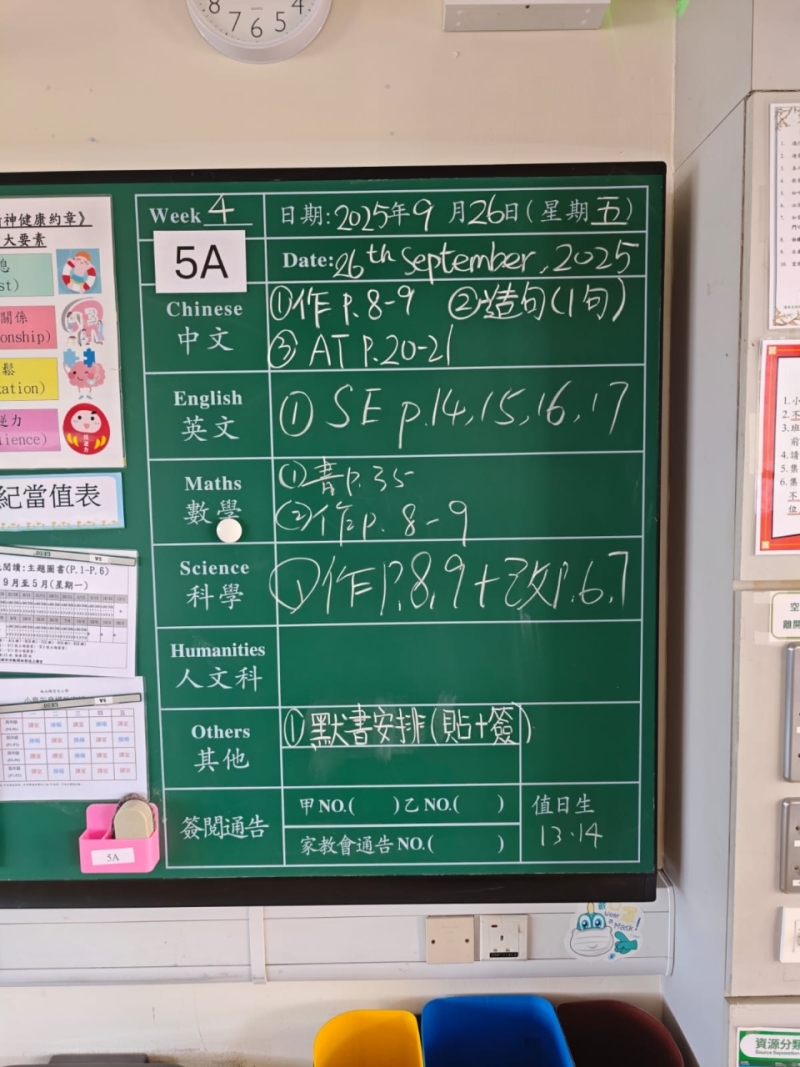 8 7 6 5 4
Week 4
日期: 2025年9月26日(星期五)
5A
Date: 26th September, 2025
Chinese
中文
①作 P.8-9 ②造句(1句)
③ AT P.20-21
English
英文
① SE p.14,15,16,17
Maths
數學
①青p.35
②作p. 8-9
Science
科學
①作P.8,9+改P.6,7
Humanities
人文科
Others
其他
①默書安排(貼+簽)
簽閱通告
甲NO.( )乙NO.( )
家教會通告NO.( )
值日生
13.14
神健康約章》
大要素
關係
onship)
鬆
xation)
逆力
lience)
紀當值表
閱讀:主題圖書(P.1-P.6)
9月至5月(星期一)
5A
Wear a Mask!
資源分類